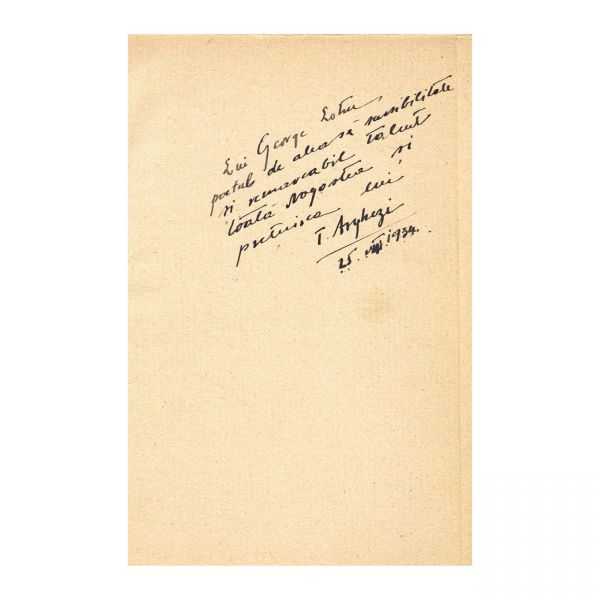 Lui George Lotru
poetul de aleasă sensibilitate
și remarcabil talent
toată dragostea și
prețuirea lui
T. Arghezi
25. VIII 1934.